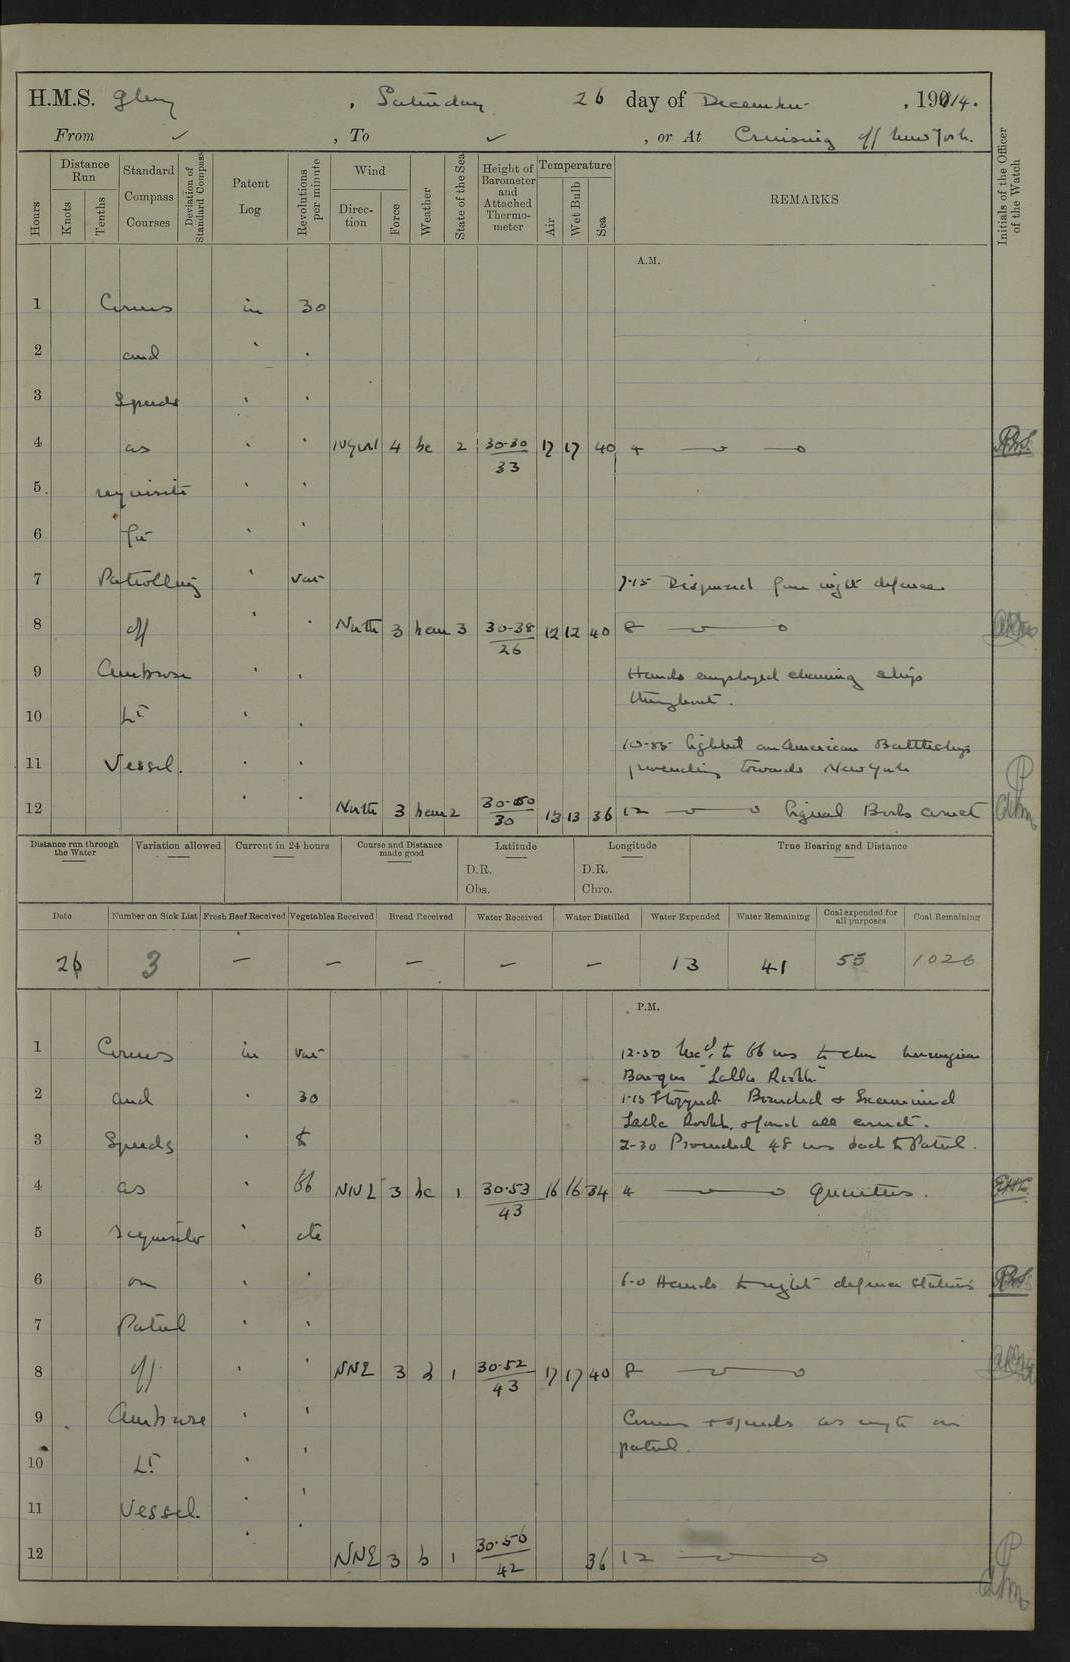 H.M.S. Glory , Saturday 26 day of December , 1914.
From ✓ , To ✓ , or At Cruising off New York.
Hours
Distance Run
Knots
Tenths
Standard Compass Courses
Deviation of Standard Compass
Patent Log
Revolutions per minute
Wind
Direction
Force
Weather
State of the Sea
Height of Barometer and Attached Thermometer
Temperature
Air
Wet Bulb
Sea
REMARKS
Initials of the Officer of the Watch
A.M.
1 Courses in 30
2 and
3 Speeds
4 as 4 bc 2 30-30/33 17 17 40 4
5 requisite
6 for
7 Patrolling var 7-15 Dispersed from night defence
8 off North 3 bcm 3 30-38/26 12 12 40 8
9 Ambrose Hands employed cleaning ship
throughout.
10 Lt
10-55 Sighted an American Battleship
11 Vessel. proceeding towards New York
12 North 3 bcm 2 30-50/30 13 13 36 12 Signal Books correct
Distance run through the Water
Variation allowed
Current in 24 hours
Course and Distance made good
Latitude
D.R.
Obs.
Longitude
D.R.
Chro.
True Bearing and Distance
Date Number on Sick List Fresh Beef Received Vegetables Received Bread Received Water Received Water Distilled Water Expended Water Remaining Coal expended for all purposes Coal Remaining
26 3 — — — — — 13 41 55 1026
P.M.
1 Courses in var 12-30 Inc'd to 66 revs to close Norwegian
Barque "Lalla Rookh"
2 and 30 1-15 Stopped. Boarded & Examined
Lalla Rookh, & found all correct.
3 Speeds to 2-30 Proceeded 48 revs back to Patrol.
4 as 66 NNE 3 bc 1 30-53/43 16 16 34 4 Quarters.
5 requisite etc
6 on 6-0 Hands to night defence stations
7 Patrol
8 off NNE 3 b 1 30-52/43 17 17 40 8
9 Ambrose Courses & speeds as req'te on
patrol.
10 Lt
11 Vessel.
12 NNE 3 b 1 30-56/42 36 12